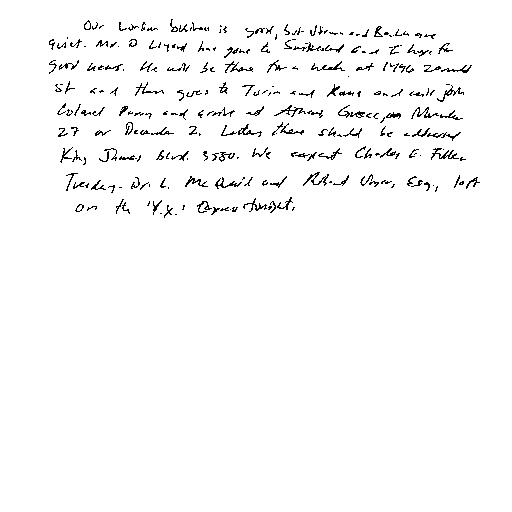 Our London business is good, but Vienna and Berlin are
quiet. Mr. D. Lloyd has gone to Switzerland and I hope for
good news. He will be there for a week at 1496 Zermott
St. and then goes to Turin and Rome and will join
Colonel Parry and arrive at Athens, Greece, on November
27 or December 2. Letters there should be addressed
King James Blvd. 3580. We expect Charles E. Fuller
Tuesday. Dr. L. McQuaid and Robert Unger, Esq., left
on the 'Y.X.' Express tonight.